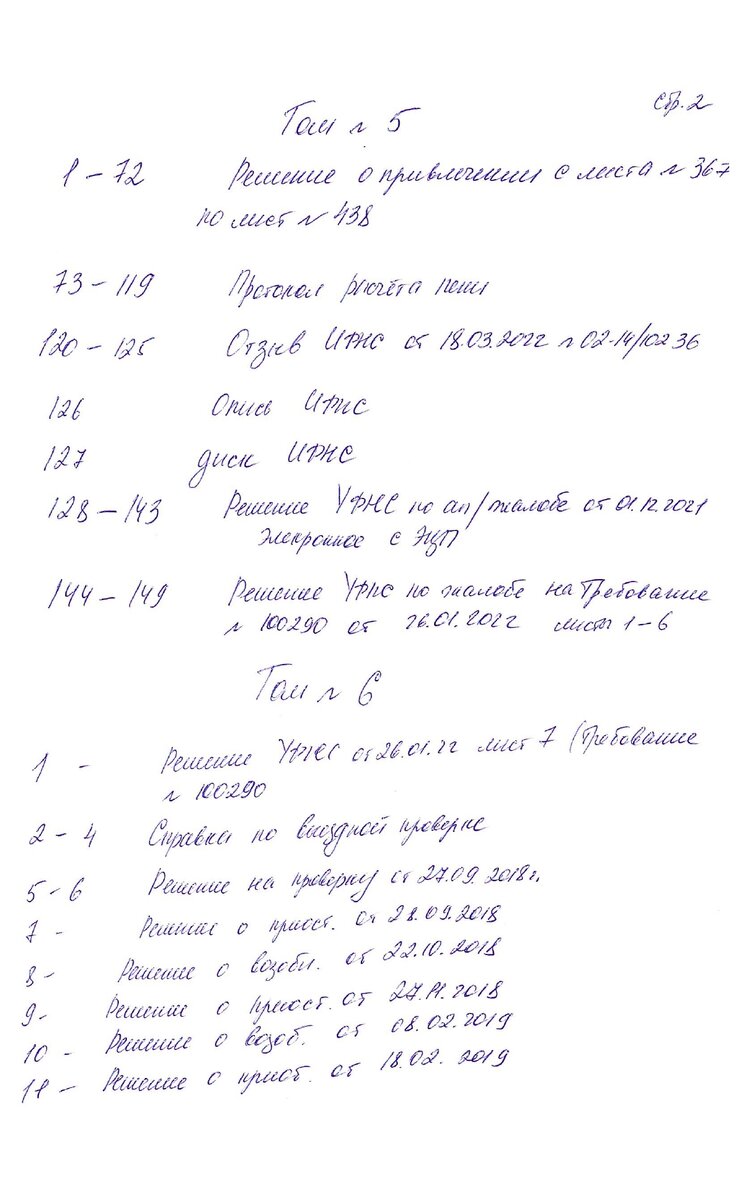 стр. 2
Том № 5
1 – 72 Решение о привлечении с листа № 367
по лист № 438
73 – 119 Протокол расчёта пени
120 – 125 Отзыв ИФНС от 18.03.2022 № 02-14/10236
126 Опись ИФНС
127 диск ИФНС
128 – 143 Решение УФНС по ап/жалобе от 01.12.2021
Элекронное с ЭЦП
144 – 149 Решение УФНС по жалобе на Требование
№ 100290 от 26.01.2022 листы 1 – 6
Том № 6
1 - Решение УФНС от 26.01.22 лист 7 (Требование
№ 100290
2 – 4 Справка по выездной проверке
5 - 6 Решение на проверку от 27.09.2018г.
7 - Решение о приост. от 28.09.2018
8 - Решение о возобн. от 22.10.2018
9 - Решение о приост. от 27.11.2018
10 - Решение о возоб. от 08.02.2019
11 - Решение о приост. от 18.02.2019